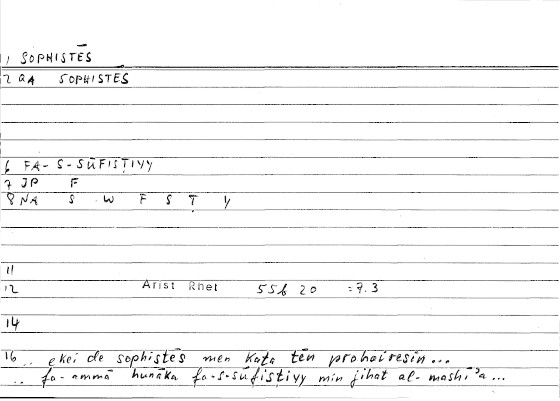 1 SOPHISTĒS
2 QA SOPHISTĒS
6 FA-S-SŪFISṬIYY
7 JP F
8 NA S W F S Ṭ Y
11
12 Arist Rhet 55b 20 =7.3
14
16 .. ekei de sophistēs men kata tēn prohairesin...
.. fa-ammā hunāka fa-s-sūfisṭiyy min jihat al-mashīʾa ...